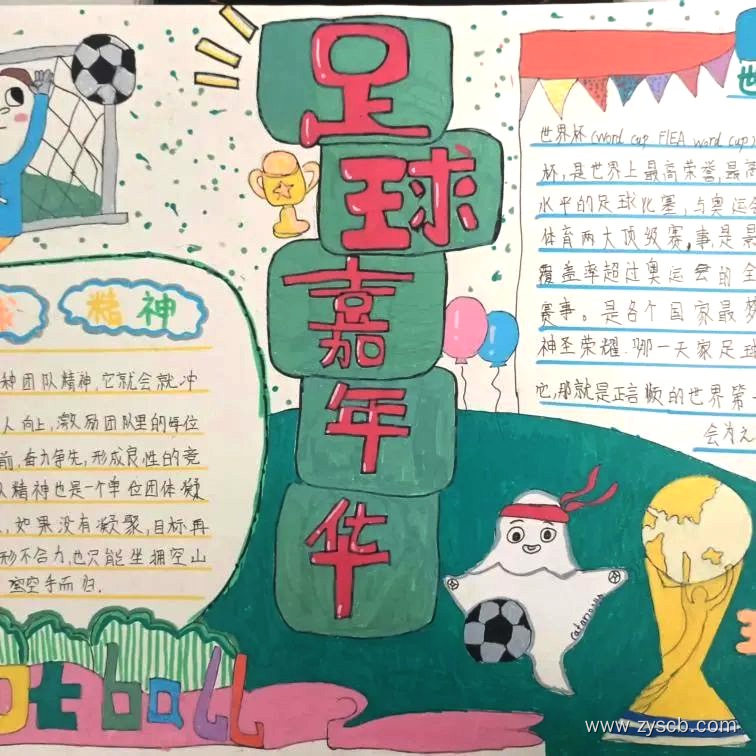 足球嘉年华
精神
种团队精神,它就会就冲
人向上,激励团队里的每位
前,奋力争先,形成良性的竞
队精神也是一个单位团体凝
如果没有凝聚,目标再
形不合力,也只能坐拥空山
空手而归.
otball
世
世界杯(word cup FIEA word cup)
杯,是世界上最高荣誉,最高
水平的足球比赛,与奥运会
体育两大顶级赛,事,是是
覆盖率超过奥运会的全
赛事。是各个国家最梦
神圣荣耀.哪一天家足球
它,那就是正言顺的世界第一
会为之
www.zyscb.com